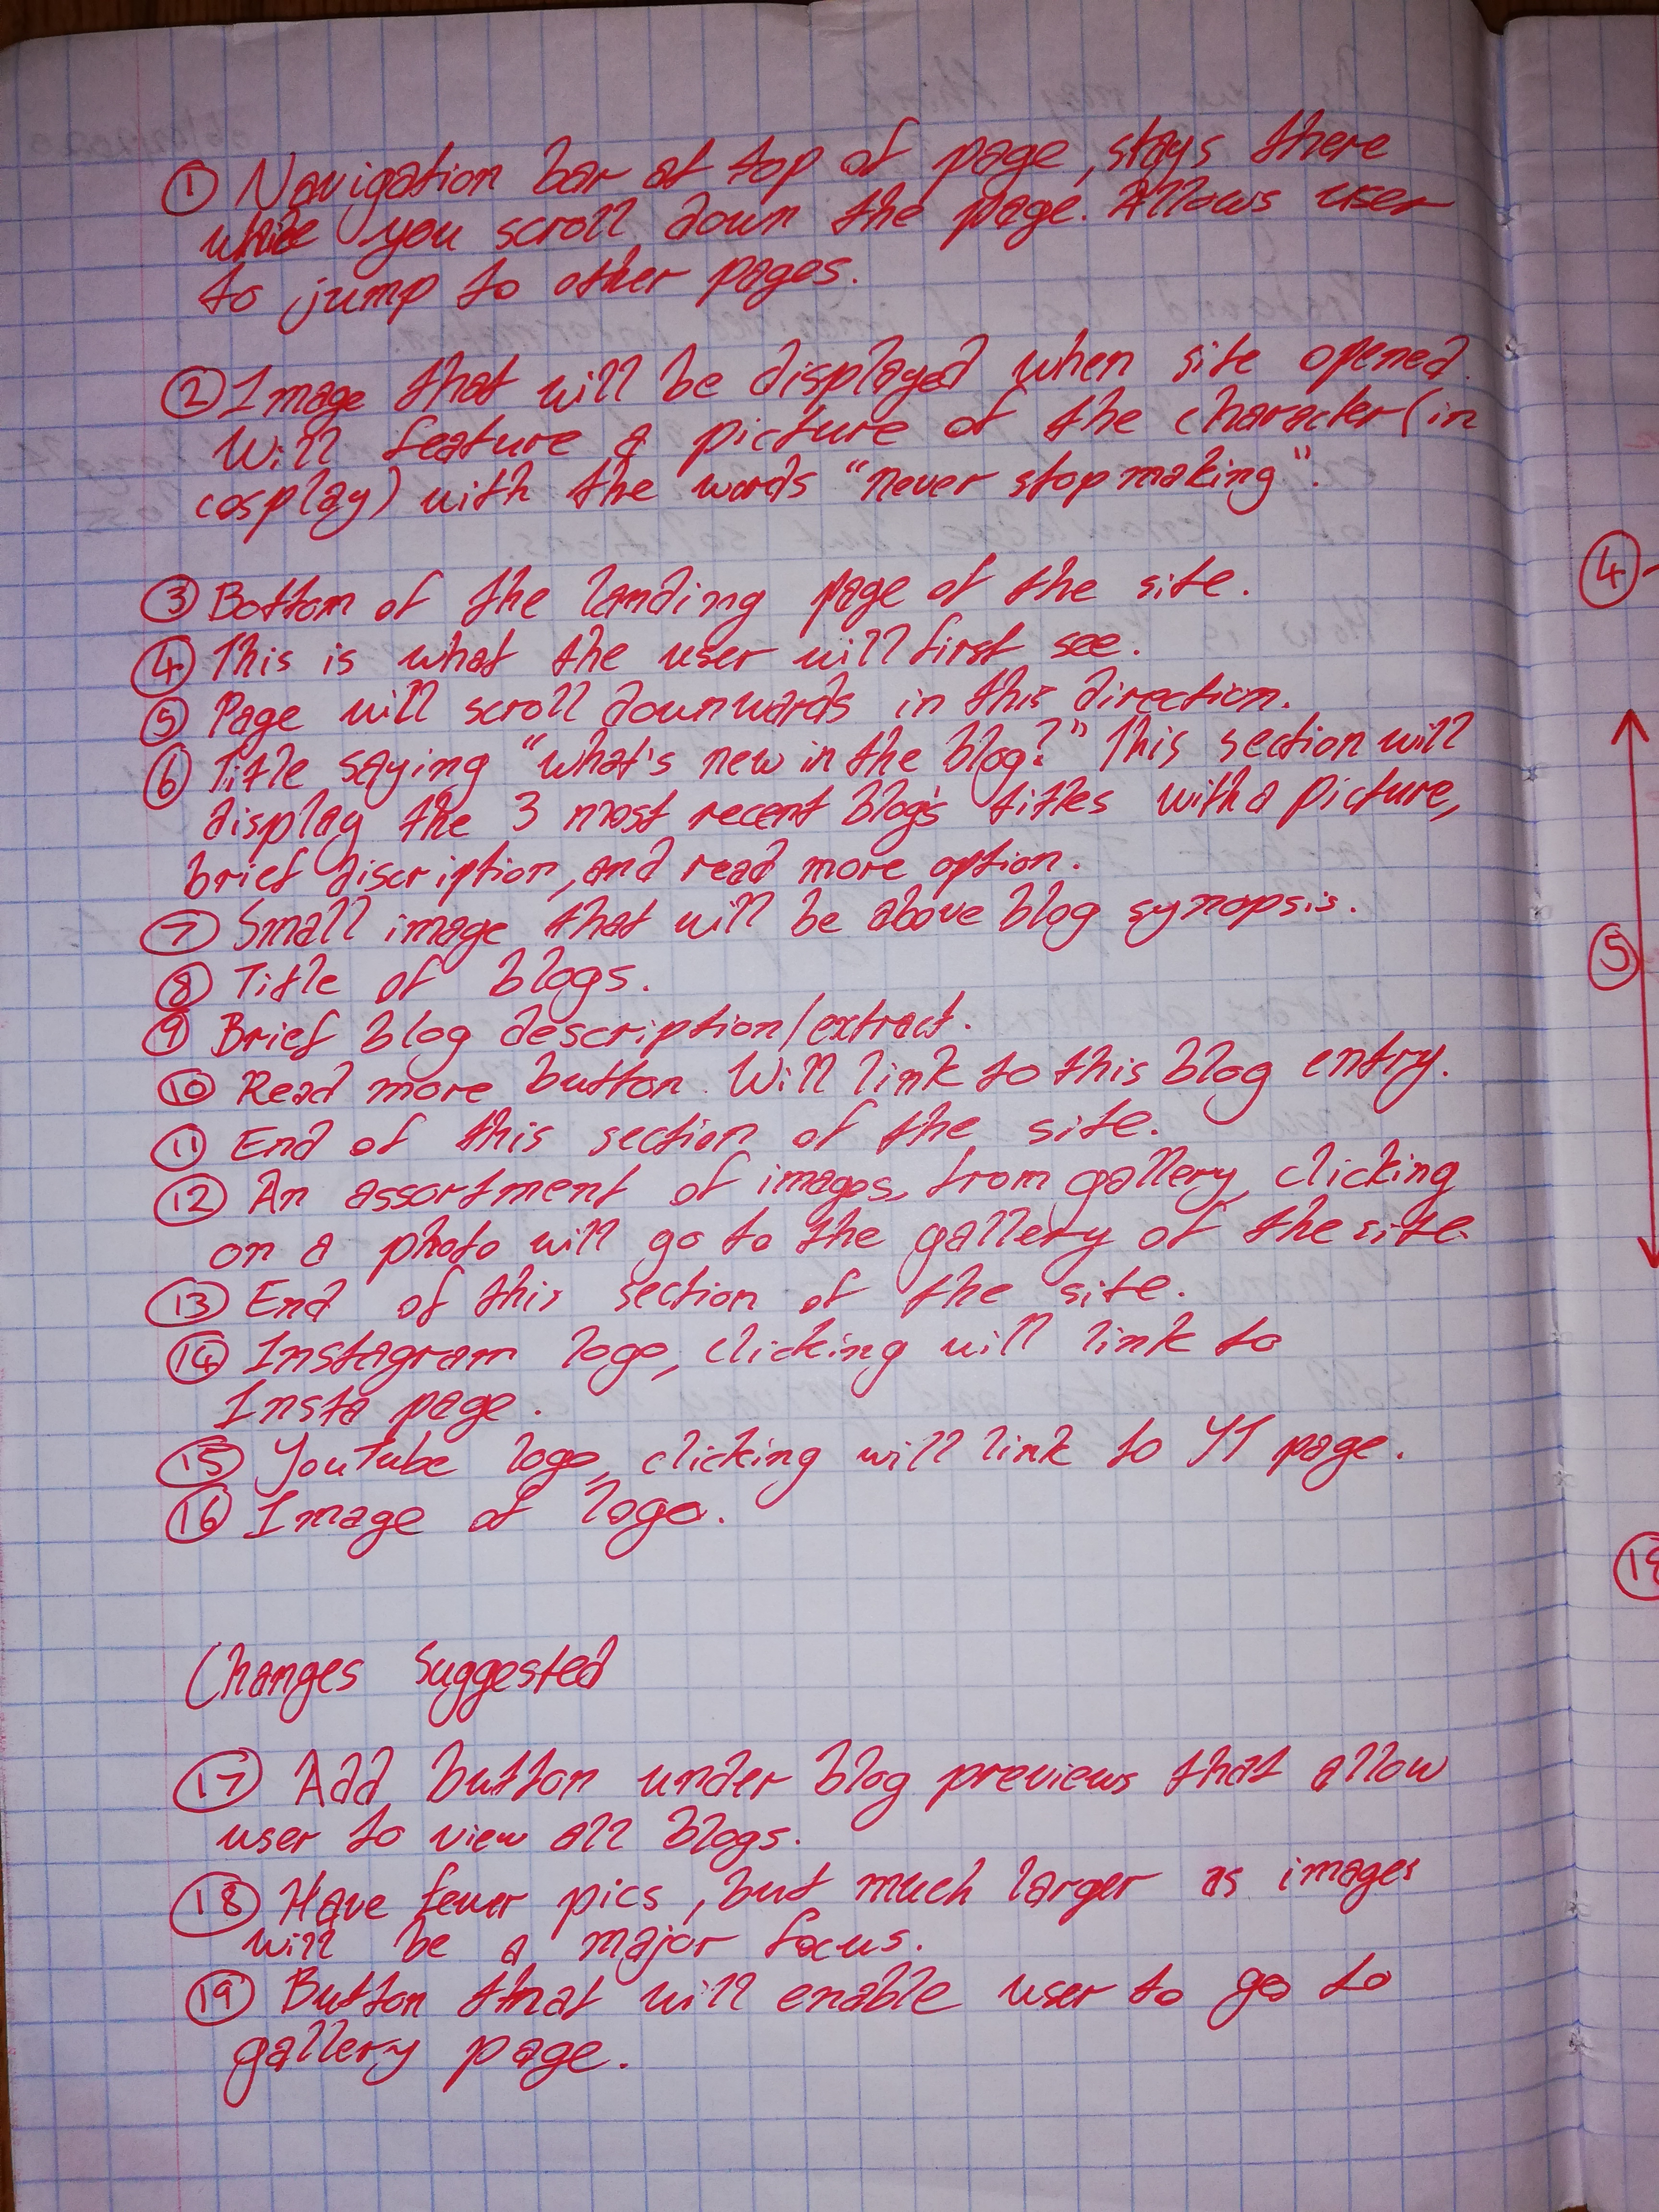 ① Navigation bar at top of page, stays there
while you scroll down the page. Allows user
to jump to other pages.
② Image that will be displayed when site opened.
Will feature a picture of the character (in
cosplay) with the words "never stop making".
③ Bottom of the landing page of the site.
④ This is what the user will first see.
⑤ Page will scroll downwards in this direction.
⑥ Title saying "what's new in the blog?" This section will
display the 3 most recent blog's titles with a picture,
brief discription, and read more option.
⑦ Small image that will be above blog synopsis.
⑧ Title of blogs.
⑨ Brief blog description/extract.
⑩ Read more button. Will link to this blog entry.
⑪ End of this section of the site.
⑫ An assortment of images, from gallery, clicking
on a photo will go to the gallery of the site.
⑬ End of this section of the site.
⑭ Instagram logo, clicking will link to
Insta page.
⑮ YouTube logo, clicking will link to YT page.
⑯ Image of logo.
Changes Suggested
⑰ Add button under blog previews that allow
user to view all blogs.
⑱ Have fewer pics, but much larger as images
will be a major focus.
⑲ Button that will enable user to go to
gallery page.
④
⑤